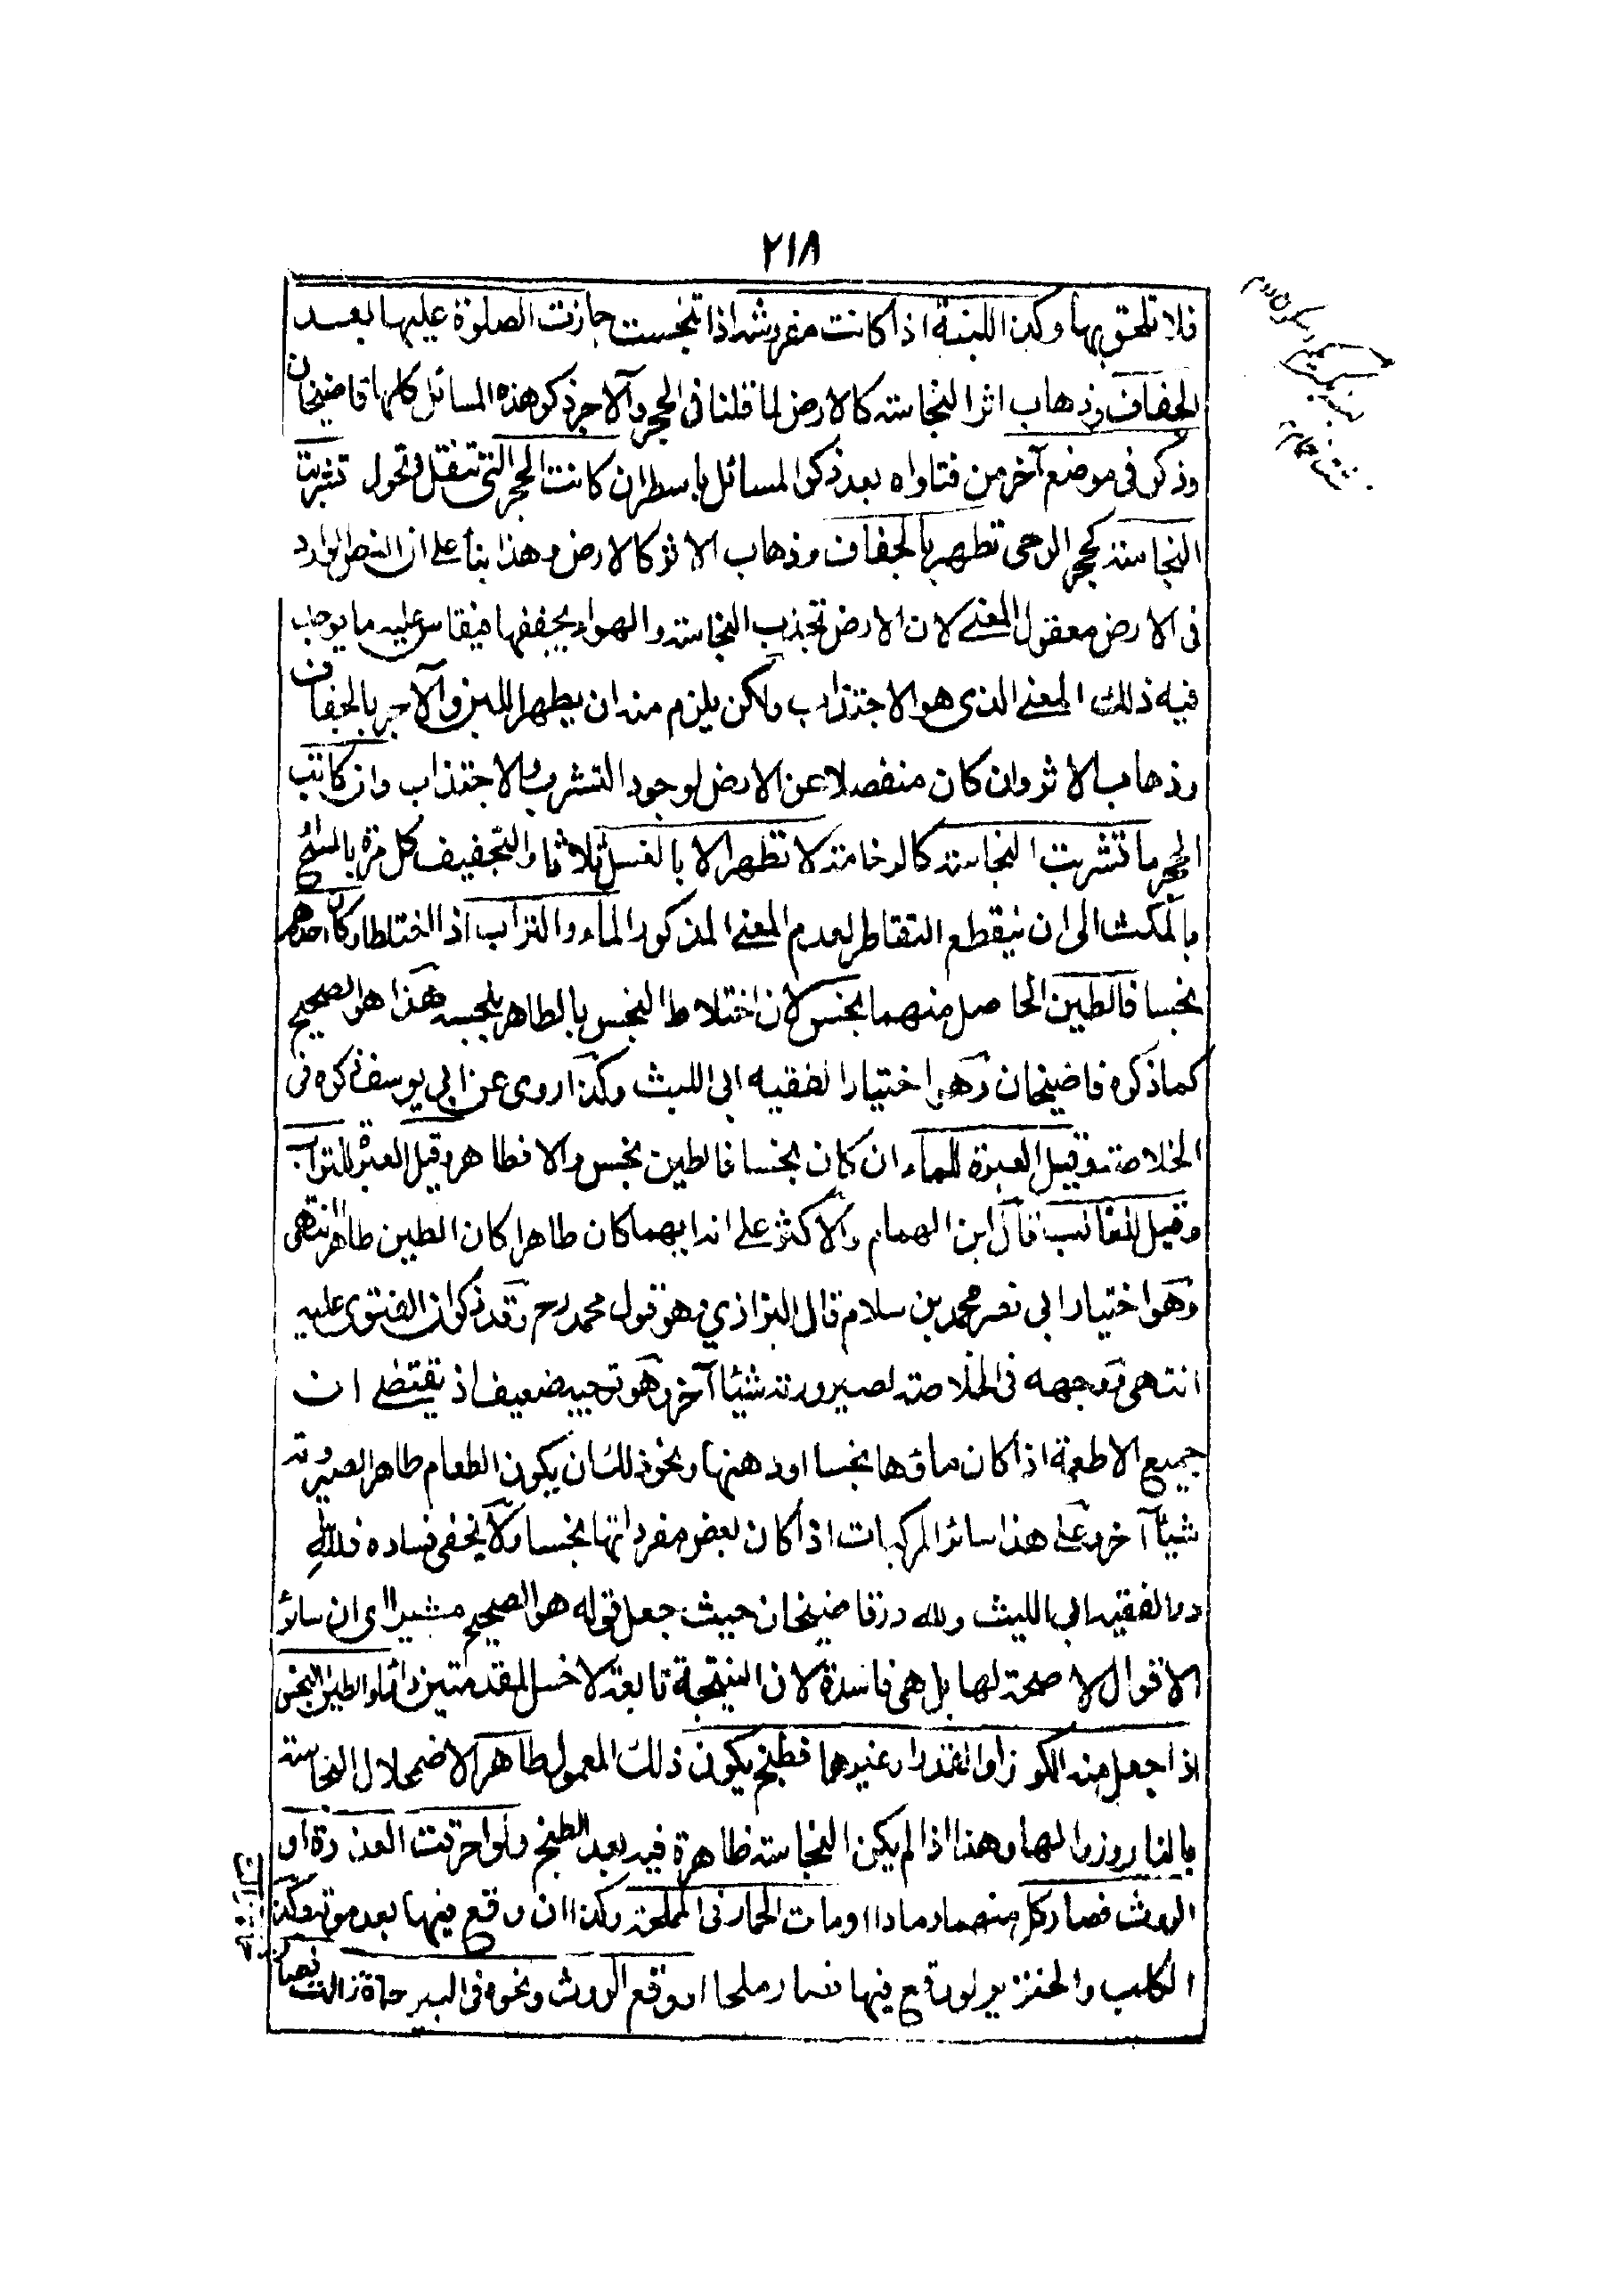 ٢١٨
فلا تلحق بها وكذا اللبنة اذا كانت مفروشة اذا تنجست جازت الصلوة عليها بعد
الجفاف وذهاب اثر النجاسة كالارض لما قلنا فى الحجر والآجر ذكر هذه المسائل كلها قاضيخان
وذكر فى موضع آخر من فتاواه بعد ذكر المسائل باسطر ان كانت الحجر التى تنقل وتحول تشربت
النجاسة كحجر الرحى تطهر بالجفاف وذهاب الاثر كالارض وهذا بناء على ان النص الوارد
فى الارض معقول المعنى لان الارض تجذب النجاسة والهواء يجففها فيقاس عليه ما يوجد
فيه ذلك المعنى الذى هو الاجتذاب ولكن يلزم منه ان يطهر اللبن والآجر بالجفاف
وذهاب الاثر وان كان منفصلا عن الارض لوجود التشرب والاجتذاب وان كانت
الحجر ما تشربت النجاسة كالرخامة لا تطهر الا بالغسل ثلاثا والتجفيف كل مرة بالمسح
بالمكث الى ان ينقطع التقاطر لعدم المعنى المذكور الماء والتراب اذا اختلطا وكان احدهما
نجسا فالطين الحاصل منهما نجس لان اختلاط النجس بالطاهر ينجسه هذا هو الصحيح
كما ذكره قاضيخان وهو اختيار الفقيه ابى الليث وكذا روى عن ابى يوسف ذكره فى
الخلاصة وقيل العبرة للماء ان كان نجسا فالطين نجس والا فطاهر وقيل العبرة للتراب
وقيل للغالب قال ابن الهمام والاكثر على انه ايهما كان طاهرا كان الطين طاهرا انتهى
وهو اختيار ابى نصر محمد بن سلام قال البزازي وهو قول محمد رح وقد ذكر ان الفتوى عليه
انتهى ووجهه فى الخلاصة لصيرورته شيئا آخر وهو توجيه ضعيف اذ يقتضى ان
جميع الاطعمة اذا كان ماؤها نجسا او دهنها ونحو ذلك ان يكون الطعام طاهرا لصيرورته
شيئا آخر وعلى هذا سائر المركبات اذا كان بعض مفرداتها نجسا ولا يخفى فساده فلله
در الفقيه ابى الليث ولله در قاضيخان حيث جعل قوله هو الصحيح مشيرا الى ان سائر
الاقوال لا صحة لها بل هى فاسدة لان النتيجة تابعة لاخس المقدمتين دائما والطين النجس
اذا جعل منه الكوز او القدر او غيرهما فطبخ يكون ذلك المعمول طاهرا لاضمحلال النجاسة
بالنار وزوالها وهذا اذا لم يكن النجاسة ظاهرة فيه بعد الطبخ ولو احرقت العذرة او
الروث فصار كل منهما رمادا او مات الحمار فى المملحة وكذا ان وقع فيها بعد موته وكذا
الكلب والخنزير لو وقع فيها فصار ملحا او وقع الروث ونحوه فى البير فصار حماة زالت